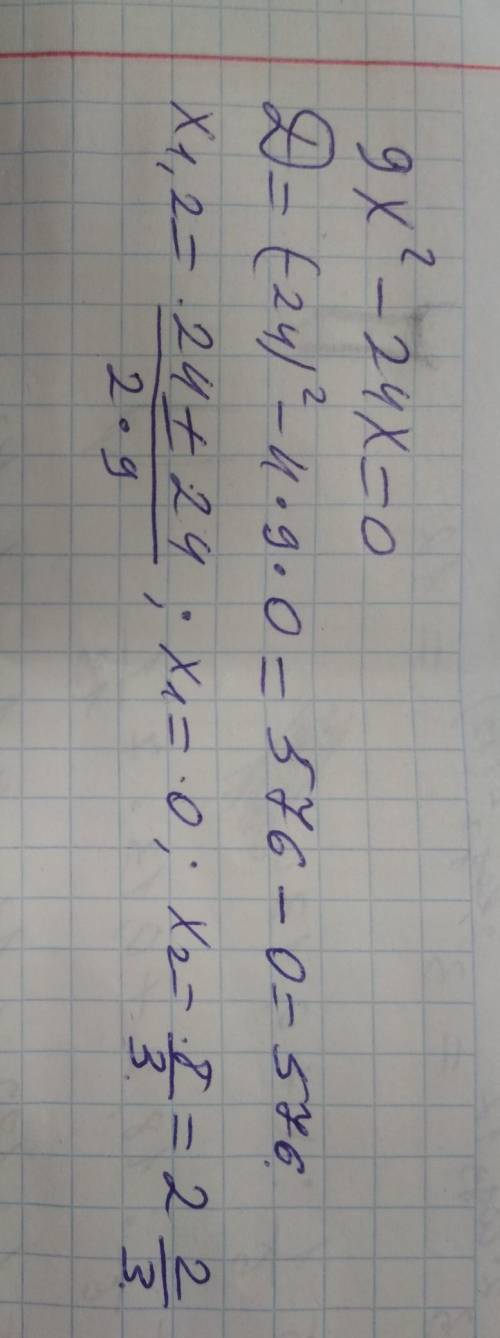 9x² - 24x = 0
D = (-24)² - 4 · 9 · 0 = 576 - 0 = 576
x₁,₂ = (24 ± 24)/(2 · 9) ; x₁ = 0 ; x₂ = 8/3 = 2 2/3